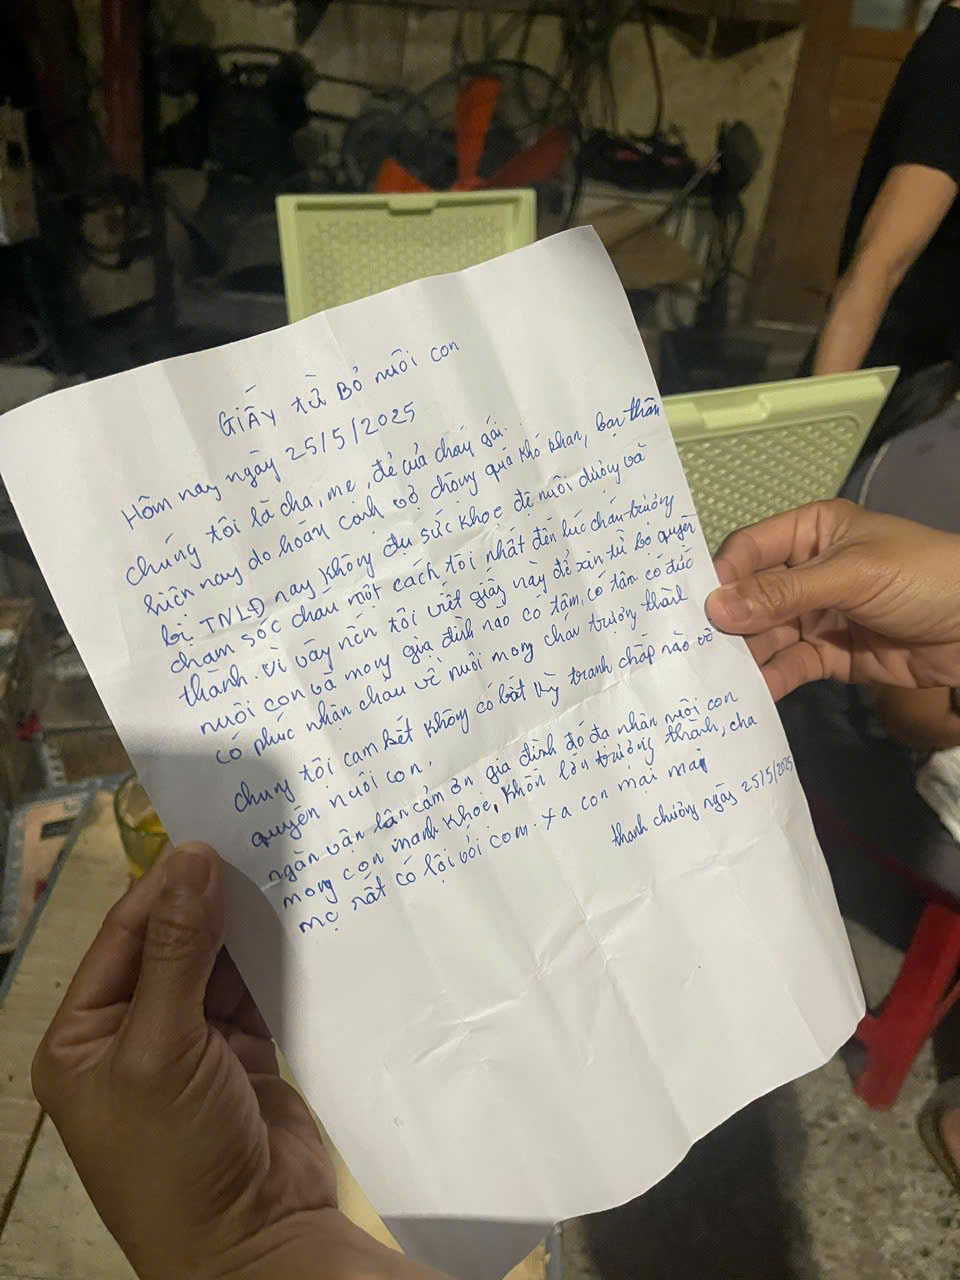 Giấy từ Bỏ nuôi con
Hôm nay ngày 25/5/2025
chúng tôi là cha, mẹ, đẻ của cháu gái.
hiện nay do hoàn cảnh vợ chồng quá khó khan, bạn thân
bị TNLĐ nay không đủ sức khoẻ để nuôi dưỡng và
chăm sóc cháu một cách tôi nhất đến lúc cháu trưởng
thành. vì vậy nên tôi viết giấy này để xin từ bỏ quyền
nuôi con và mong gia đình nào có tâm, có tầm có đức
có phúc nhận chau về nuôi mong cháu trưởng thành
chung tôi cam kết không có bất kỳ tranh chấp nào về
quyền nuôi con.
ngàn vân lần cảm ơn gia đình đó đa nhận nuôi con
mong con mạnh khoẻ, khôn lớn trưởng thành, cha
mẹ rất có lội với con. xa con mại mại
thanh chưởng ngày 25/5/2025